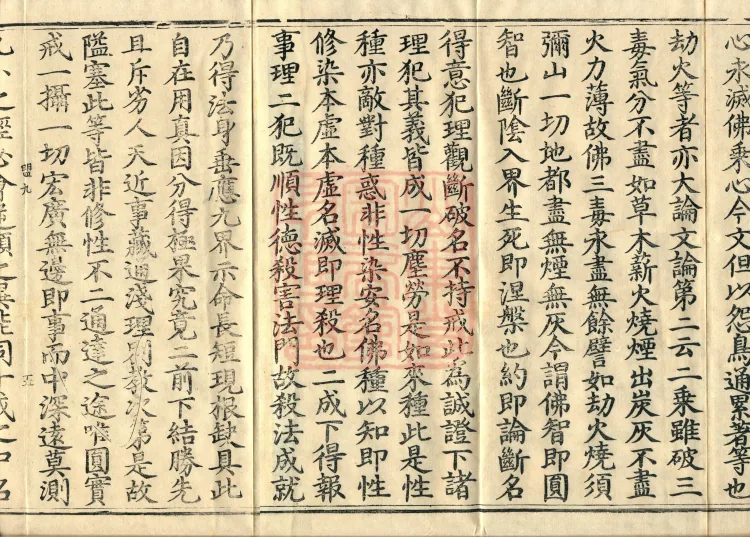 心永滅佛乘心今文但以怨鳥通累著等也
劫火等者亦大論文論第二云二乘雖破三
毒氣分不盡如草木薪火燒煙出炭灰不盡
火力薄故佛三毒永盡無餘譬如劫火燒須
彌山一切地都盡無煙無灰今謂佛智即圓
智也斷陰入界生死即涅槃也約即論斷名
得意犯理觀斷破名不持戒此為誠證下諸
理犯其義皆成一切塵勞是如來種此是性
種亦敵對種惑非性染安名佛種以知即性
修染本虛本虛名滅即理殺也二成下得報
事理二犯既順性德殺害法門故殺法成就
乃得法身垂應九界示命長短現根缺具此
自在用真因分得極果究竟二前下結勝先
且斥劣人天近事藏通淺理別教次第是故
隘塞此等皆非修性不二通達之途唯圓實
戒一攝一切宏廣無邊即事而中深遠莫測
盟九
五